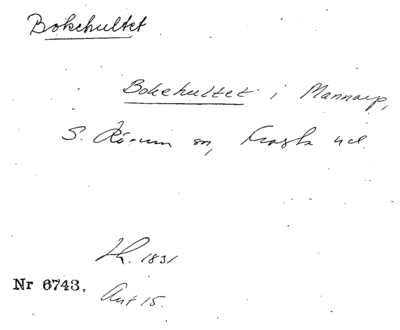 Bokehultet
Bokehultet i Mannarp,
S. Rörum sn, Frosta hd.
Lk. 1831
Nr 6743. Akt 15.